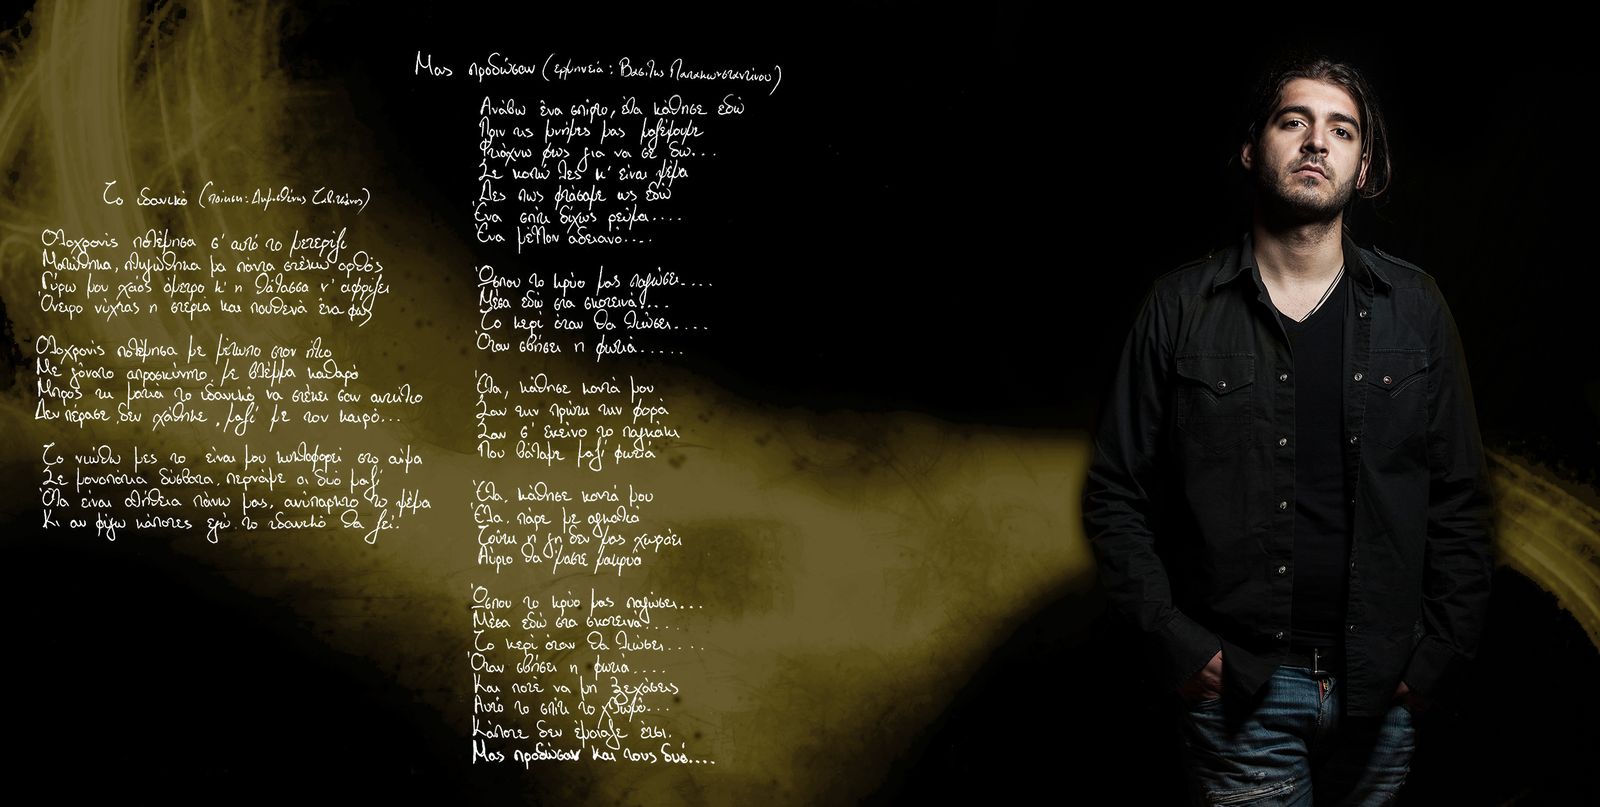 Το ιδανικό (ποίηση: Δημοσθένης
Ολοχρονίς πολέμησα σ' αυτό το μετερίζι
Ματώθηκα, πληγώθηκα μα πάντα στέκω ορθός
Γύρω μου χάος άμετρο κ' η θάλασσα ν' αφρίζει
Όνειρο νύχτας η στεριά και πουθενά ένα φως
Ολοχρονίς πολέμησα με μέτωπο στον ήλιο
Με γόνατο απροσκύνητο, με βλέμμα καθαρό
Μπρος τα μάτια το ιδανικό να στέκει σαν αντήλιο
Δεν πέρασε, δεν χάθηκε, μαζί με τον καιρό...
Το νιώθω μες το είναι μου κυκλοφορεί στο αίμα
Σε μονοπάτια δύσβατα, περνάμε οι δύο μαζί
Όλα είναι αλήθεια πάνω μας, ανύπαρκτο το ψέμα
Κι αν φύγω κάποτες εγώ, το ιδανικό θα ζει.
Μας προδώσαν (ερμηνεία: Βασίλης Παπακωνσταντίνου)
Ανάβω ένα σπίρτο, έλα κάθησε εδώ
Πριν τις μνήμες μας μαζέψουμε
Φτιάχνω φως για να σε δω...
Σε κοιτώ λες κ' είναι ψέμα
Λες πως φτάσαμε ως εδώ
Ένα σπίτι δίχως ρεύμα....
Ένα μέλλον αδειανό....
Ώσπου το κρύο μας παγώσει....
Μέσα εδώ στα σκοτεινά....
Το κερί όταν θα λιώσει....
Όταν σβήσει η φωτιά.....
Έλα, κάθησε κοντά μου
Σαν την πρώτη την φορά
Σαν σ' εκείνο το παγκάκι
Που βάλαμε μαζί φωτιά
Έλα, κάθησε κοντά μου
Έλα, πάρε με αγκαλιά
Τούτη η γη δεν μας χωράει
Αύριο θα 'μαστε μακρυά
Ώσπου το κρύο μας παγώσει...
Μέσα εδώ στα σκοτεινά....
Το κερί όταν θα λιώσει....
Όταν σβήσει η φωτιά....
Και ποτέ να μη ξεχάσεις
Αυτό το σπίτι το χλωμό...
Κάποτε δεν έμοιαζε έτσι.
Μας προδώσαν και τους δυό....